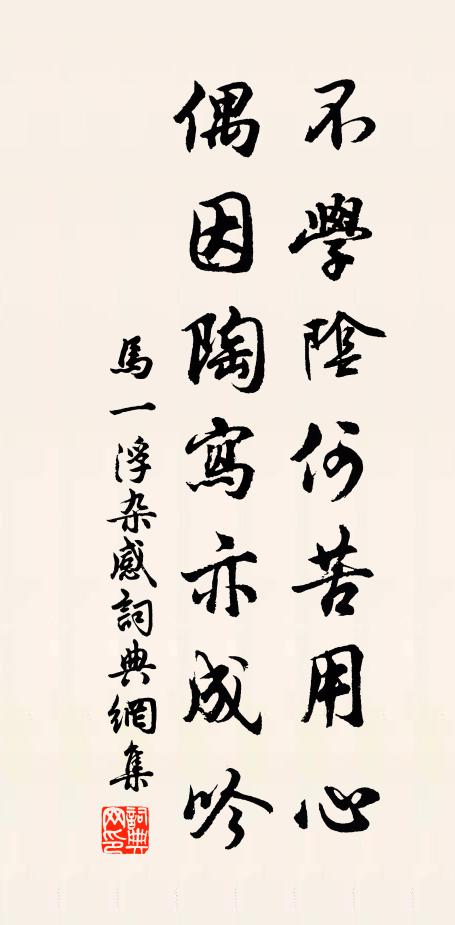 不學陰何苦用心
偶因陶寫亦成吟
馬一浮杂感詞典網集
詞典網印